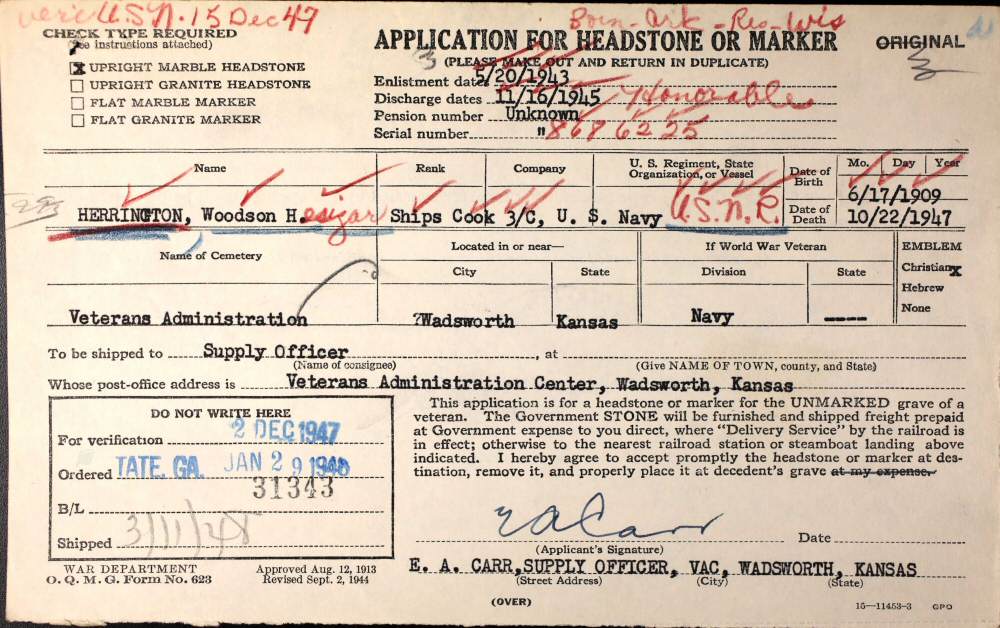 veri U.S.N. 15 Dec 47
Born - Ark - Res - Wis
CHECK TYPE REQUIRED
(See instructions attached)
X UPRIGHT MARBLE HEADSTONE
UPRIGHT GRANITE HEADSTONE
FLAT MARBLE MARKER
FLAT GRANITE MARKER
APPLICATION FOR HEADSTONE OR MARKER
(PLEASE MAKE OUT AND RETURN IN DUPLICATE)
ORIGINAL
3
Enlistment dates 5/20/1943
Discharge dates 11/16/1945 Honorable
Pension number Unknown
Serial number " 868 62 25
Name Rank Company U. S. Regiment, State Organization, or Vessel Date of Birth Mo. Day Year
6/17/1909
HERRINGTON, Woodson H. Ships Cook 3/C, U. S. Navy U.S.N.R. Date of Death 10/22/1947
Name of Cemetery Located in or near— If World War Veteran EMBLEM
City State Division State Christian X
Hebrew
None
Veterans Administration ?Wadsworth Kansas Navy ----
To be shipped to Supply Officer, at
(Name of consignee) (Give NAME OF TOWN, county, and State)
Whose post-office address is Veterans Administration Center, Wadsworth, Kansas
DO NOT WRITE HERE
For verification 2 DEC 1947
Ordered TATE, GA. JAN 29 1948
31343
B/L
Shipped 3/11/48
This application is for a headstone or marker for the UNMARKED grave of a
veteran. The Government STONE will be furnished and shipped freight prepaid
at Government expense to you direct, where "Delivery Service" by the railroad is
in effect; otherwise to the nearest railroad station or steamboat landing above
indicated. I hereby agree to accept promptly the headstone or marker at des-
tination, remove it, and properly place it at decedent's grave at my expense.
E A Carr
(Applicant's Signature) Date
E. A. CARR, SUPPLY OFFICER, VAC, WADSWORTH, KANSAS
(Street Address) (City) (State)
WAR DEPARTMENT
O. Q. M. G. Form No. 623
Approved Aug. 12, 1913
Revised Sept. 2, 1944
(OVER)
15—11453-3 GPO